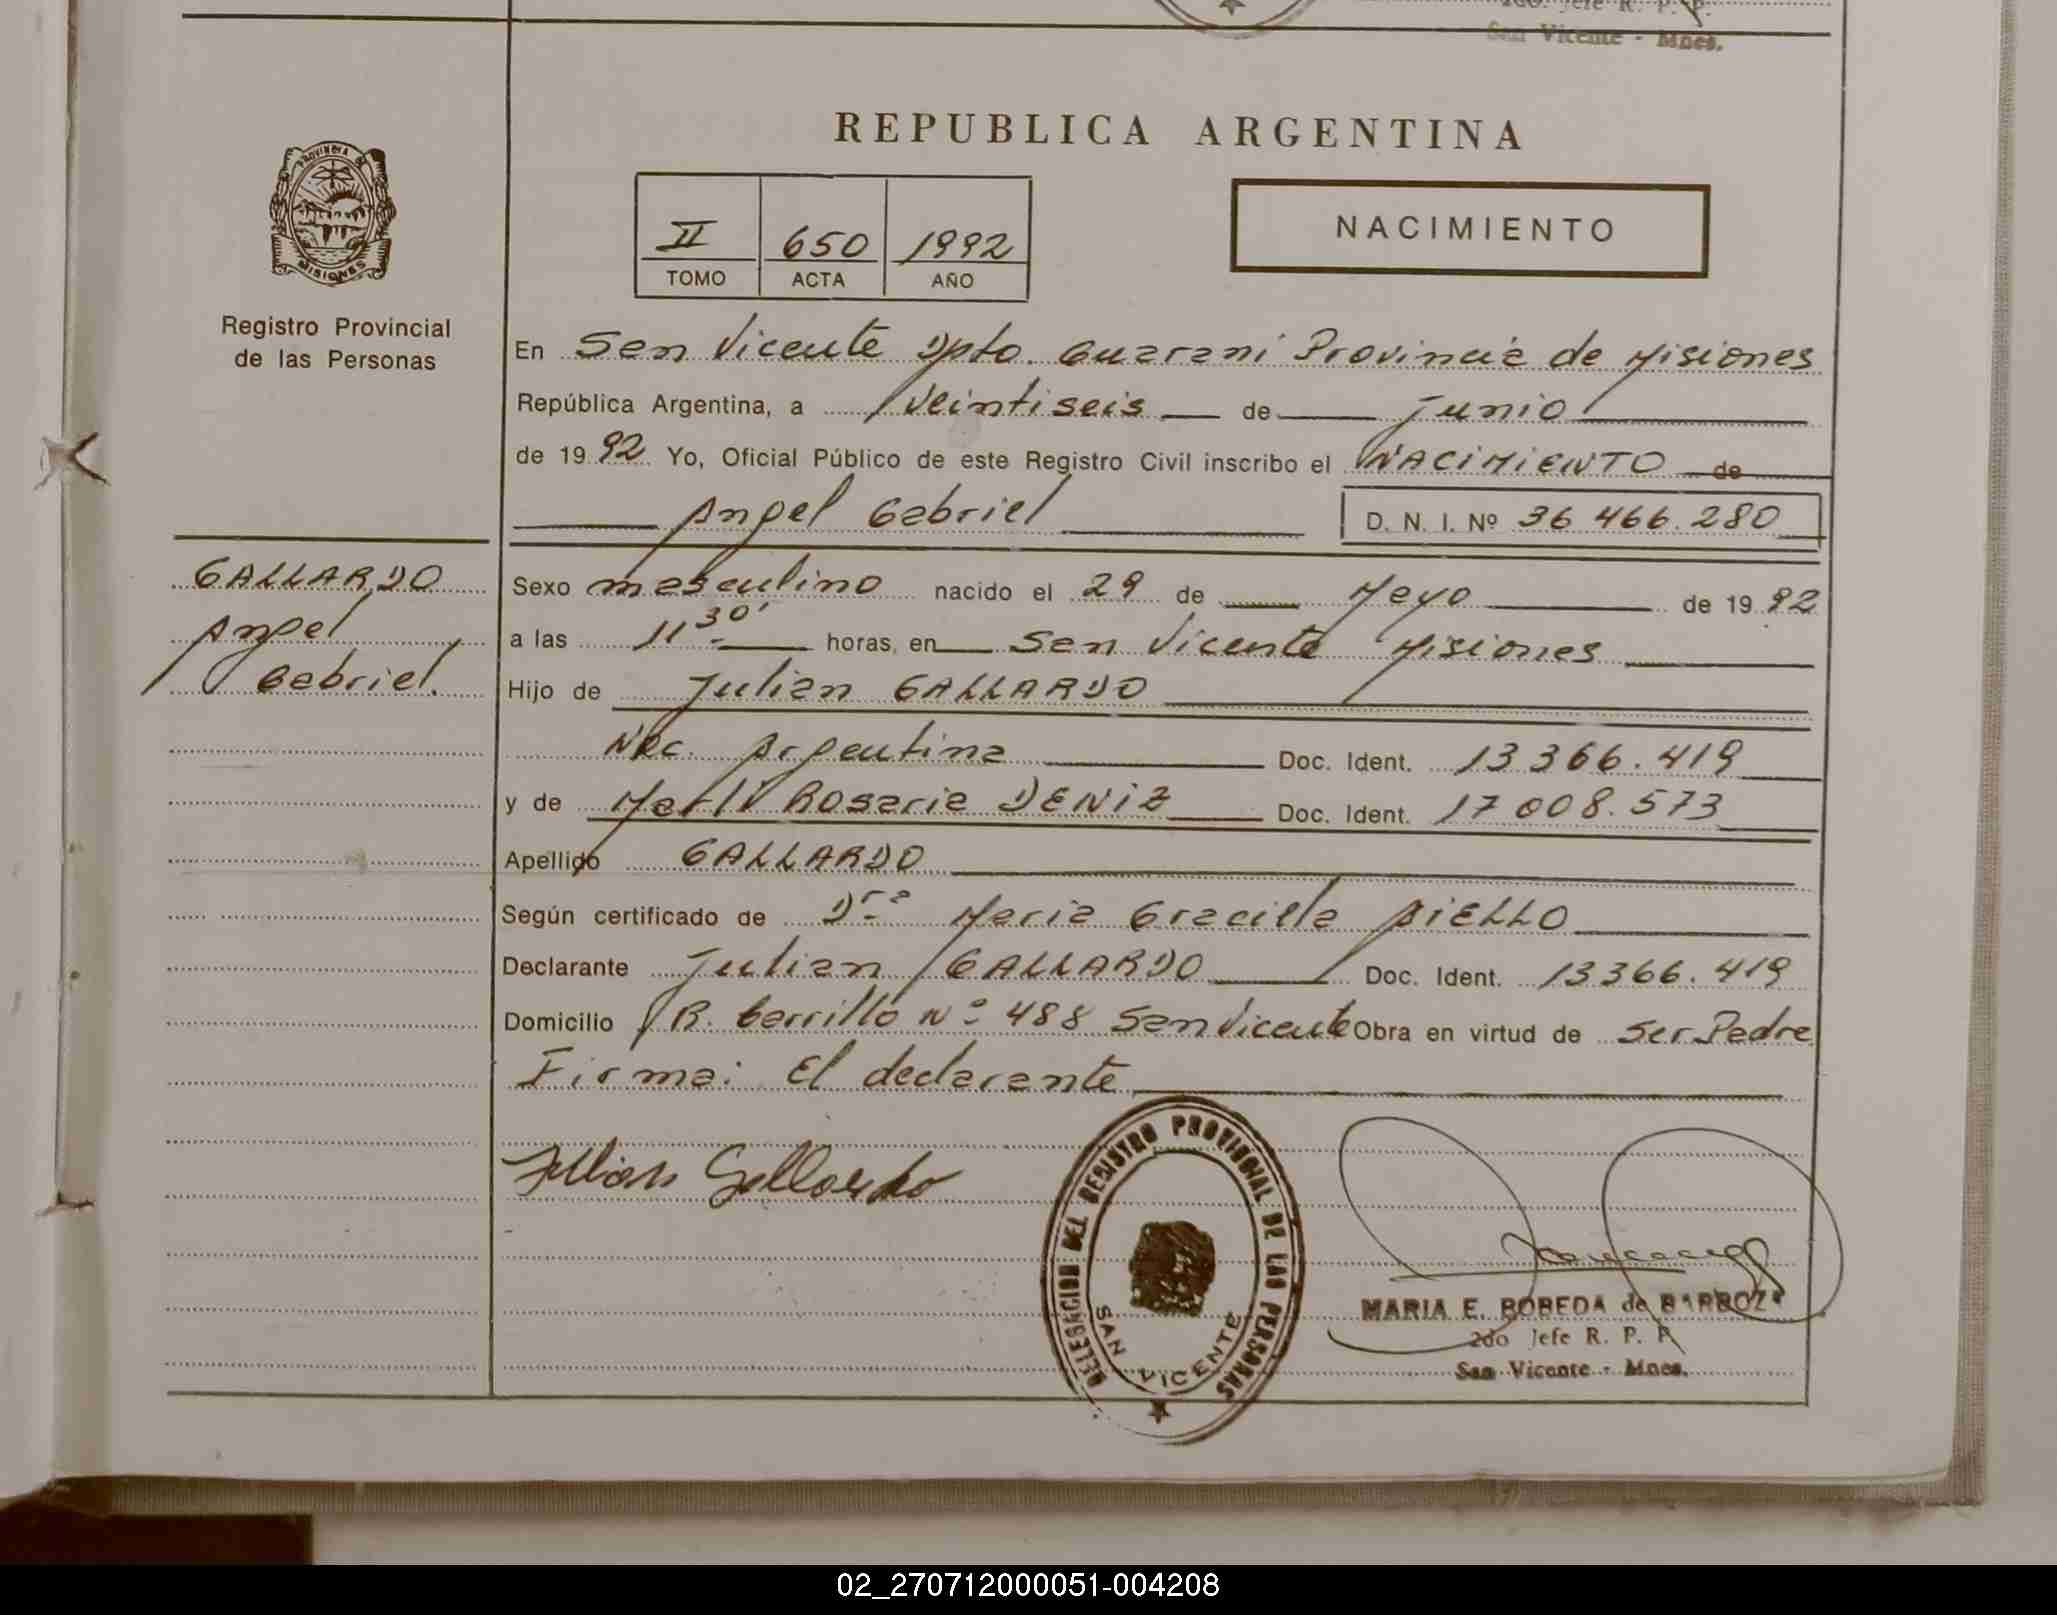 2do. Jefe R. P. P.
San Vicente - Mnes.
REPUBLICA ARGENTINA
PROVINCIA DE
MISIONES
II 650 1992
TOMO ACTA AÑO
NACIMIENTO
Registro Provincial
de las Personas
En San Vicente Dpto. Guarani Provincia de Misiones
República Argentina, a Veintiseis de Junio
de 1992 Yo, Oficial Público de este Registro Civil inscribo el NACIMIENTO de
Angel Gabriel D. N. I. Nº 36 466.280
GALLARDO
Angel
Gabriel.
Sexo masculino nacido el 29 de Mayo de 1992
a las 11 30' horas, en San Vicente Misiones
Hijo de Julian GALLARDO
Nac. Argentina Doc. Ident. 13 366.419
y de Rosaria DENIZ Doc. Ident. 17 008.573
Apellido GALLARDO
Según certificado de Dra Maria Graciela AIELLO
Declarante Julian GALLARDO Doc. Ident. 13366.419
Domicilio R. Carrillo Nº 488 San Vicente Obra en virtud de Ser Padre
Firma: El declarante
Julian Gallardo
DELEGACION DEL REGISTRO PROVINCIAL DE LAS PERSONAS
SAN VICENTE
MARIA E. BOBEDA de BARBOZA
2do Jefe R. P. P.
San Vicente - Mnes.
02_270712000051-004208